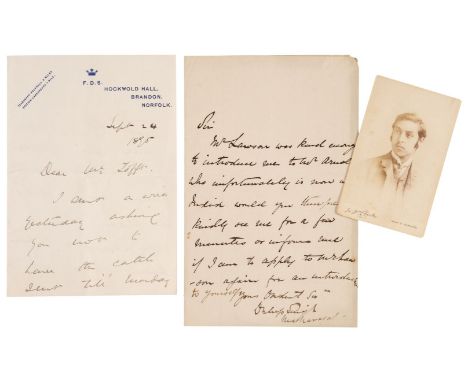 F.D.S.
HOCKWOLD HALL,
BRANDON,
NORFOLK.
Sept 24
1895
Dear Mr
I sent a wire
yesterday asking
you not to
have the
sent till Monday
Sir
Mr Lawson was kind enough
to introduce me to Mr Arnold
who unfortunately is now in
India would you therefore
kindly see me for a few
minutes or inform me
if I am to apply to Mr Law
-son again for an introduction
to yourself
Your Obedient Ser
Duleep Singh
Maharajah